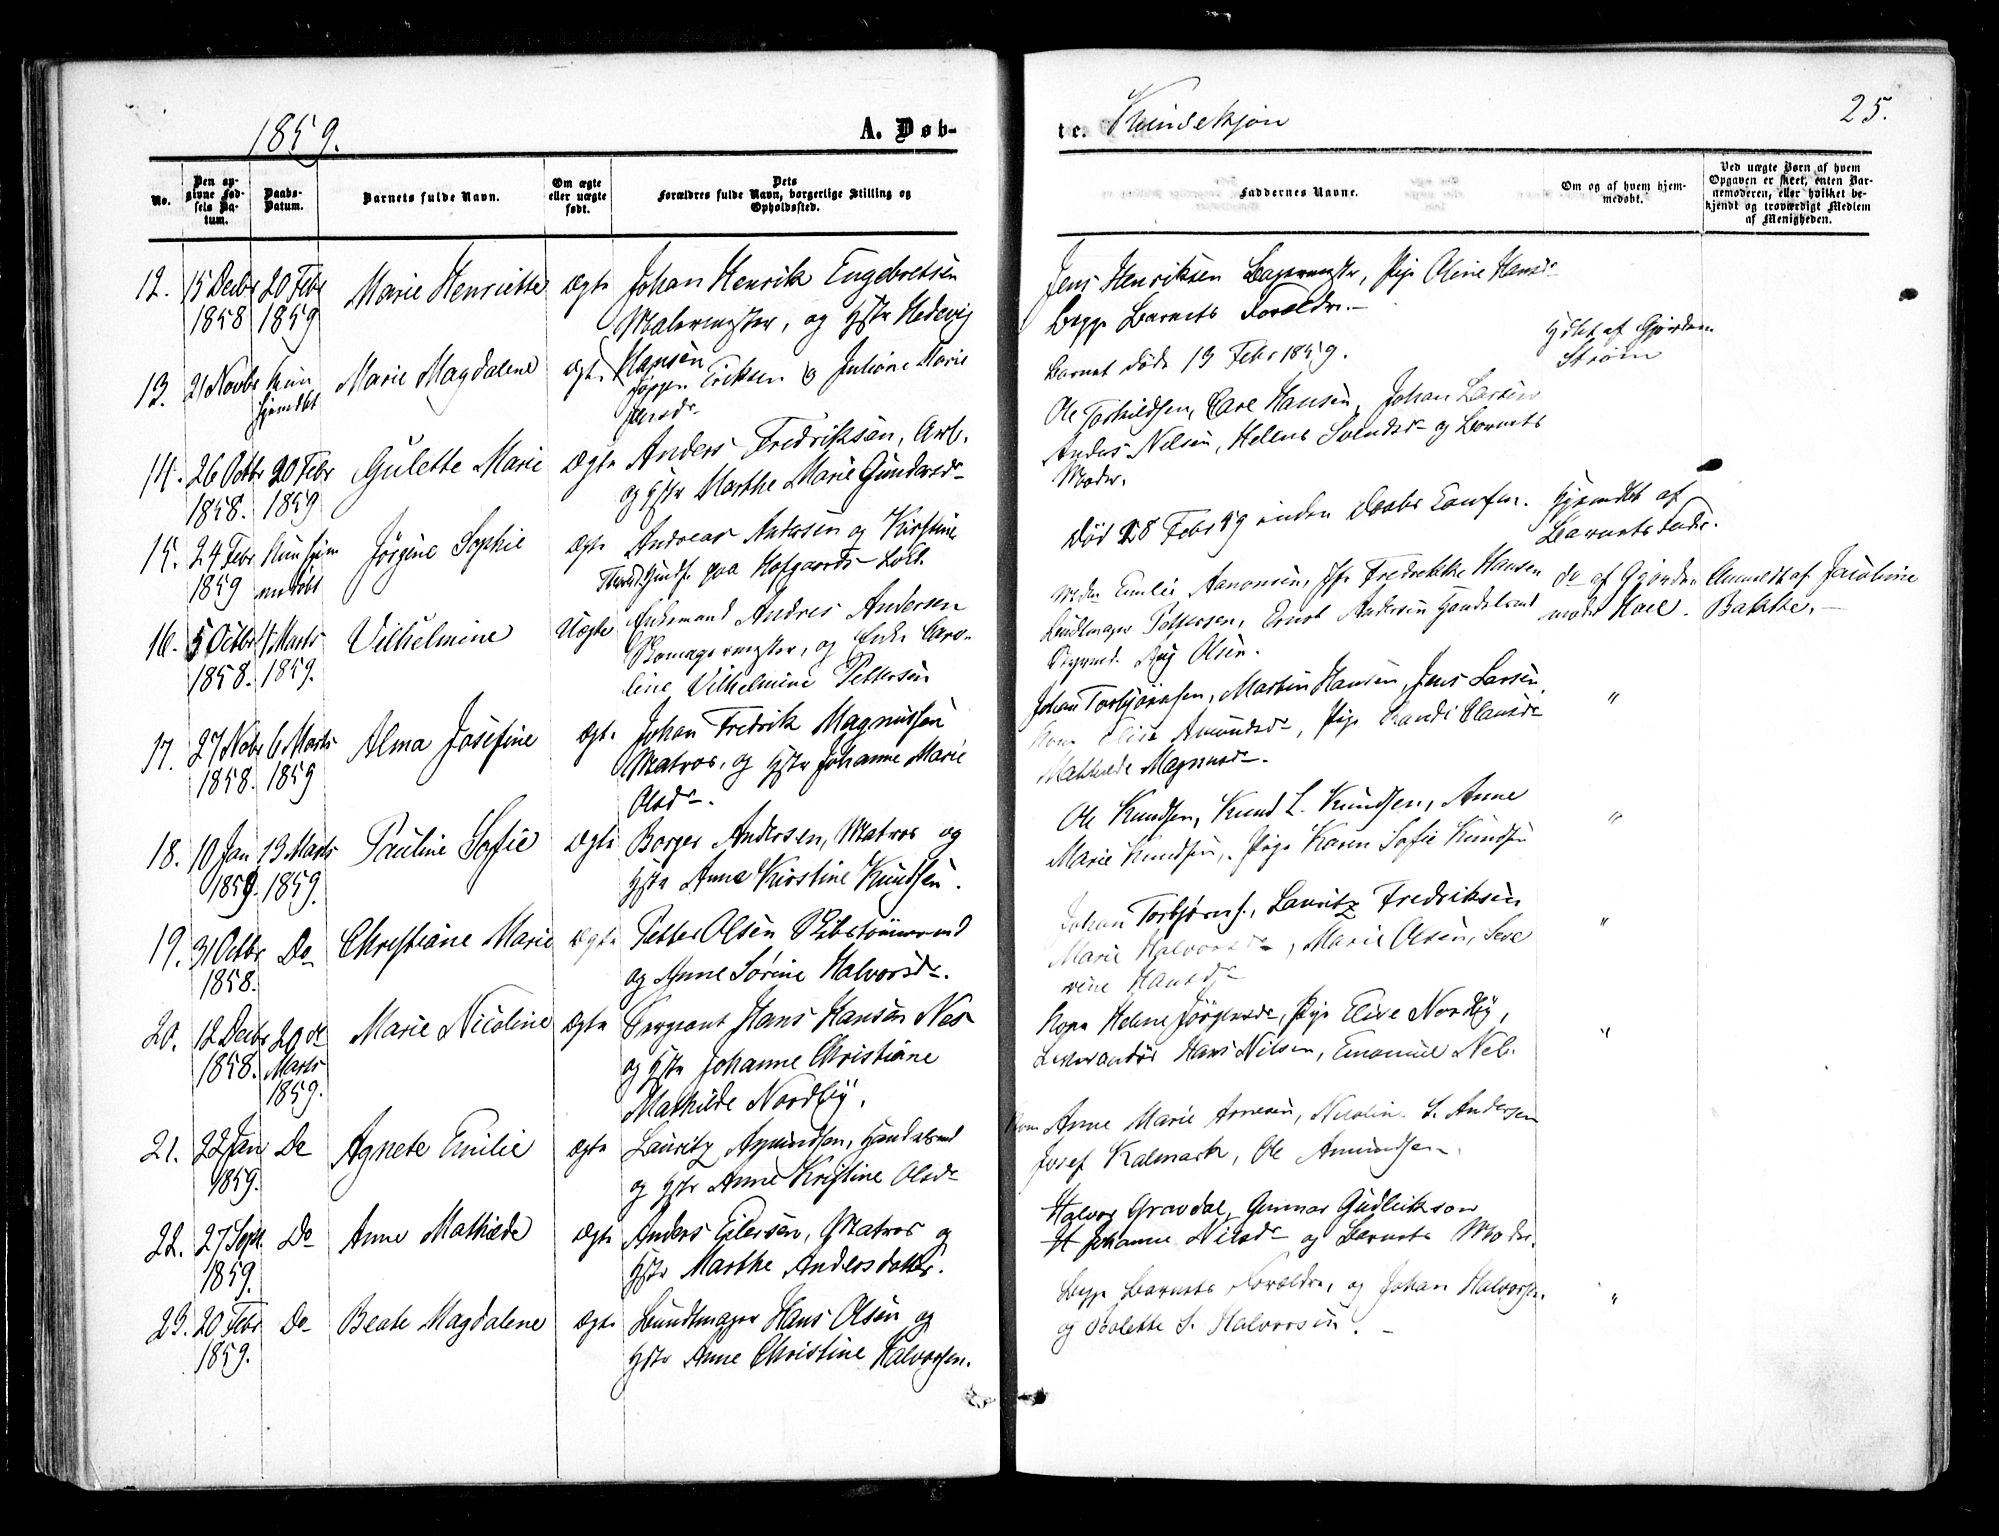 1859.
A. Døb-
te. Kvindekjøn
25.
No.
Den angivne Fødsels Datum.
Daabs-Datum.
Barnets fulde Navn.
Om ægte eller uægte født.
Dets Forældres fulde Navn, borgerlige Stilling og Opholdssted.
Faddernes Navne.
Om og af hvem hjemmedøbt.
Ved uægte Børn af hvem Opgaven er skeet, enten Barnemoderen, eller hvilket bekjendt og troværdigt Medlem af Menigheden.
12. 15 Decbr 20 Febr Marie Henriette Ægte Johan Henrik Engebretsen
1858 1859 Malermester, og Hstr Hedevig
Hansen
Jens Henriksen Bagermester, Pige Oline Hansdr
begge Barnets Forældre.
13. 21 Novbr kun hjemdbt Marie Magdalene Ægte Jørgen Eriksen og Juliane Marie
Jensdr
Barnet døde 13 Febr 1859.
Hdbt af Gjordem.
Strøm
14. 26 Octbr 20 Febr Gulette Marie Ægte Anders Fredriksen, Arb.
1858. 1859 og Hstr Marthe Marie Gundersdr
Ole Torkildsen, Carl Hansen, Johan Larsen
Anders Nilsen, Helene Svendsdr og Barnets
Moder.
15. 24 Febr kun hjem Jørgine Sophie Ægte Andreas Andersen og Kirstine
1859 medøbt paa Hofgaards-Løkk.
Død 28 Febr 59 inden Daabs Confm.
Hjemdbt af
Barnets Fader.
16. 5 Octbr 4 Marts Vilhelmine Uægte Enkemand Andres Andersen
1858. 1859. Skomagermester, og Enke Caro-
line Vilhelmine Pettersen
Mdm Emilie Aanonsen, Jfr Fredrikke Hansen
Bundtmager Pettersen, Ernst Andersen Handelsmd
Aug Olsen.
do af Gjorde-
moder Hoel.
Anmeldt af Jacobine
Bakke.
17. 27 Nobr 6 Marts Alma Josefine Ægte Johan Fredrik Magnussen
1858. 1859 Matros, og Hstr Johanne Marie
Olsdr.
Johan Torbjørnsen, Martin Hansen, Jens Larsen
Kone Elise Amundsdr, Pige Randi Clausdr
Mathilde Magnusdr.
"
18. 10 Jan 13 Marts Pauline Sofie Ægte Borger Andersen, Matros og
1859. 1859. Hstr Anne Kirstine Knudsen.
Ole Knudsen, Knud L. Knudsen, Anne
Marie Knudsen, Pige Karen Sofie Knudsen
"
19. 31 Octbr Do Christiane Marie Ægte Petter Olsen Skibstømmermd
1858. og Anne Sørine Halvorsdr.
Johan Torbjørns., Lauritz Fredriksen
Marie Halvorsdr, Marie Olsen, Seve
rine Hansdr
"
20. 12 Decbr 20de Marie Nicoline Ægte Sergeant Hans Hansen Nes
1858. Marts og Hstr Johanne Christiane
1859. Mathilde Nordby.
Kone Helene Jørgensdr, Pige Elise Nordby,
Hans Nilsen, Emanuel Nels.
"
21. 22 Jan Do Agnete Emilie Ægte Lauritz Amundsen, Handelsmd
1859. og Hstr Anne Kristine Olsdr
Kone Anne Marie Arnesen, Nicolin. S. Andersen
Josef Kalmark, Ole Amundsen.
22. 27 Sept. Do Anne Mathilde Ægte Anders Eilersen, Matros og
1859. Hstr Marthe Andersdatter.
Halvor Gravdal, Gunnar Gudleikson
Johanne Nilsdr og Barnets Moder.
23. 20 Febr Do Beate Magdalene Ægte Bundtmager Hans Olsen og
1859. Hstr Anne Christine Halvorsen.
begge Barnets Forældre, og Johan Halvorsen.
og S. Halvorsen.
"